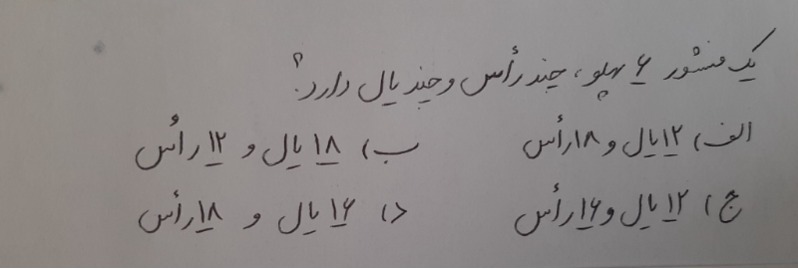 یک منشور ۶ پهلو، چند رأس و چند یال دارد؟
الف) ۱۲ یال و ۱۸ رأس ب) ۱۸ یال و ۱۲ رأس
ج) ۱۲ یال و ۱۶ رأس د) ۱۶ یال و ۱۸ رأس